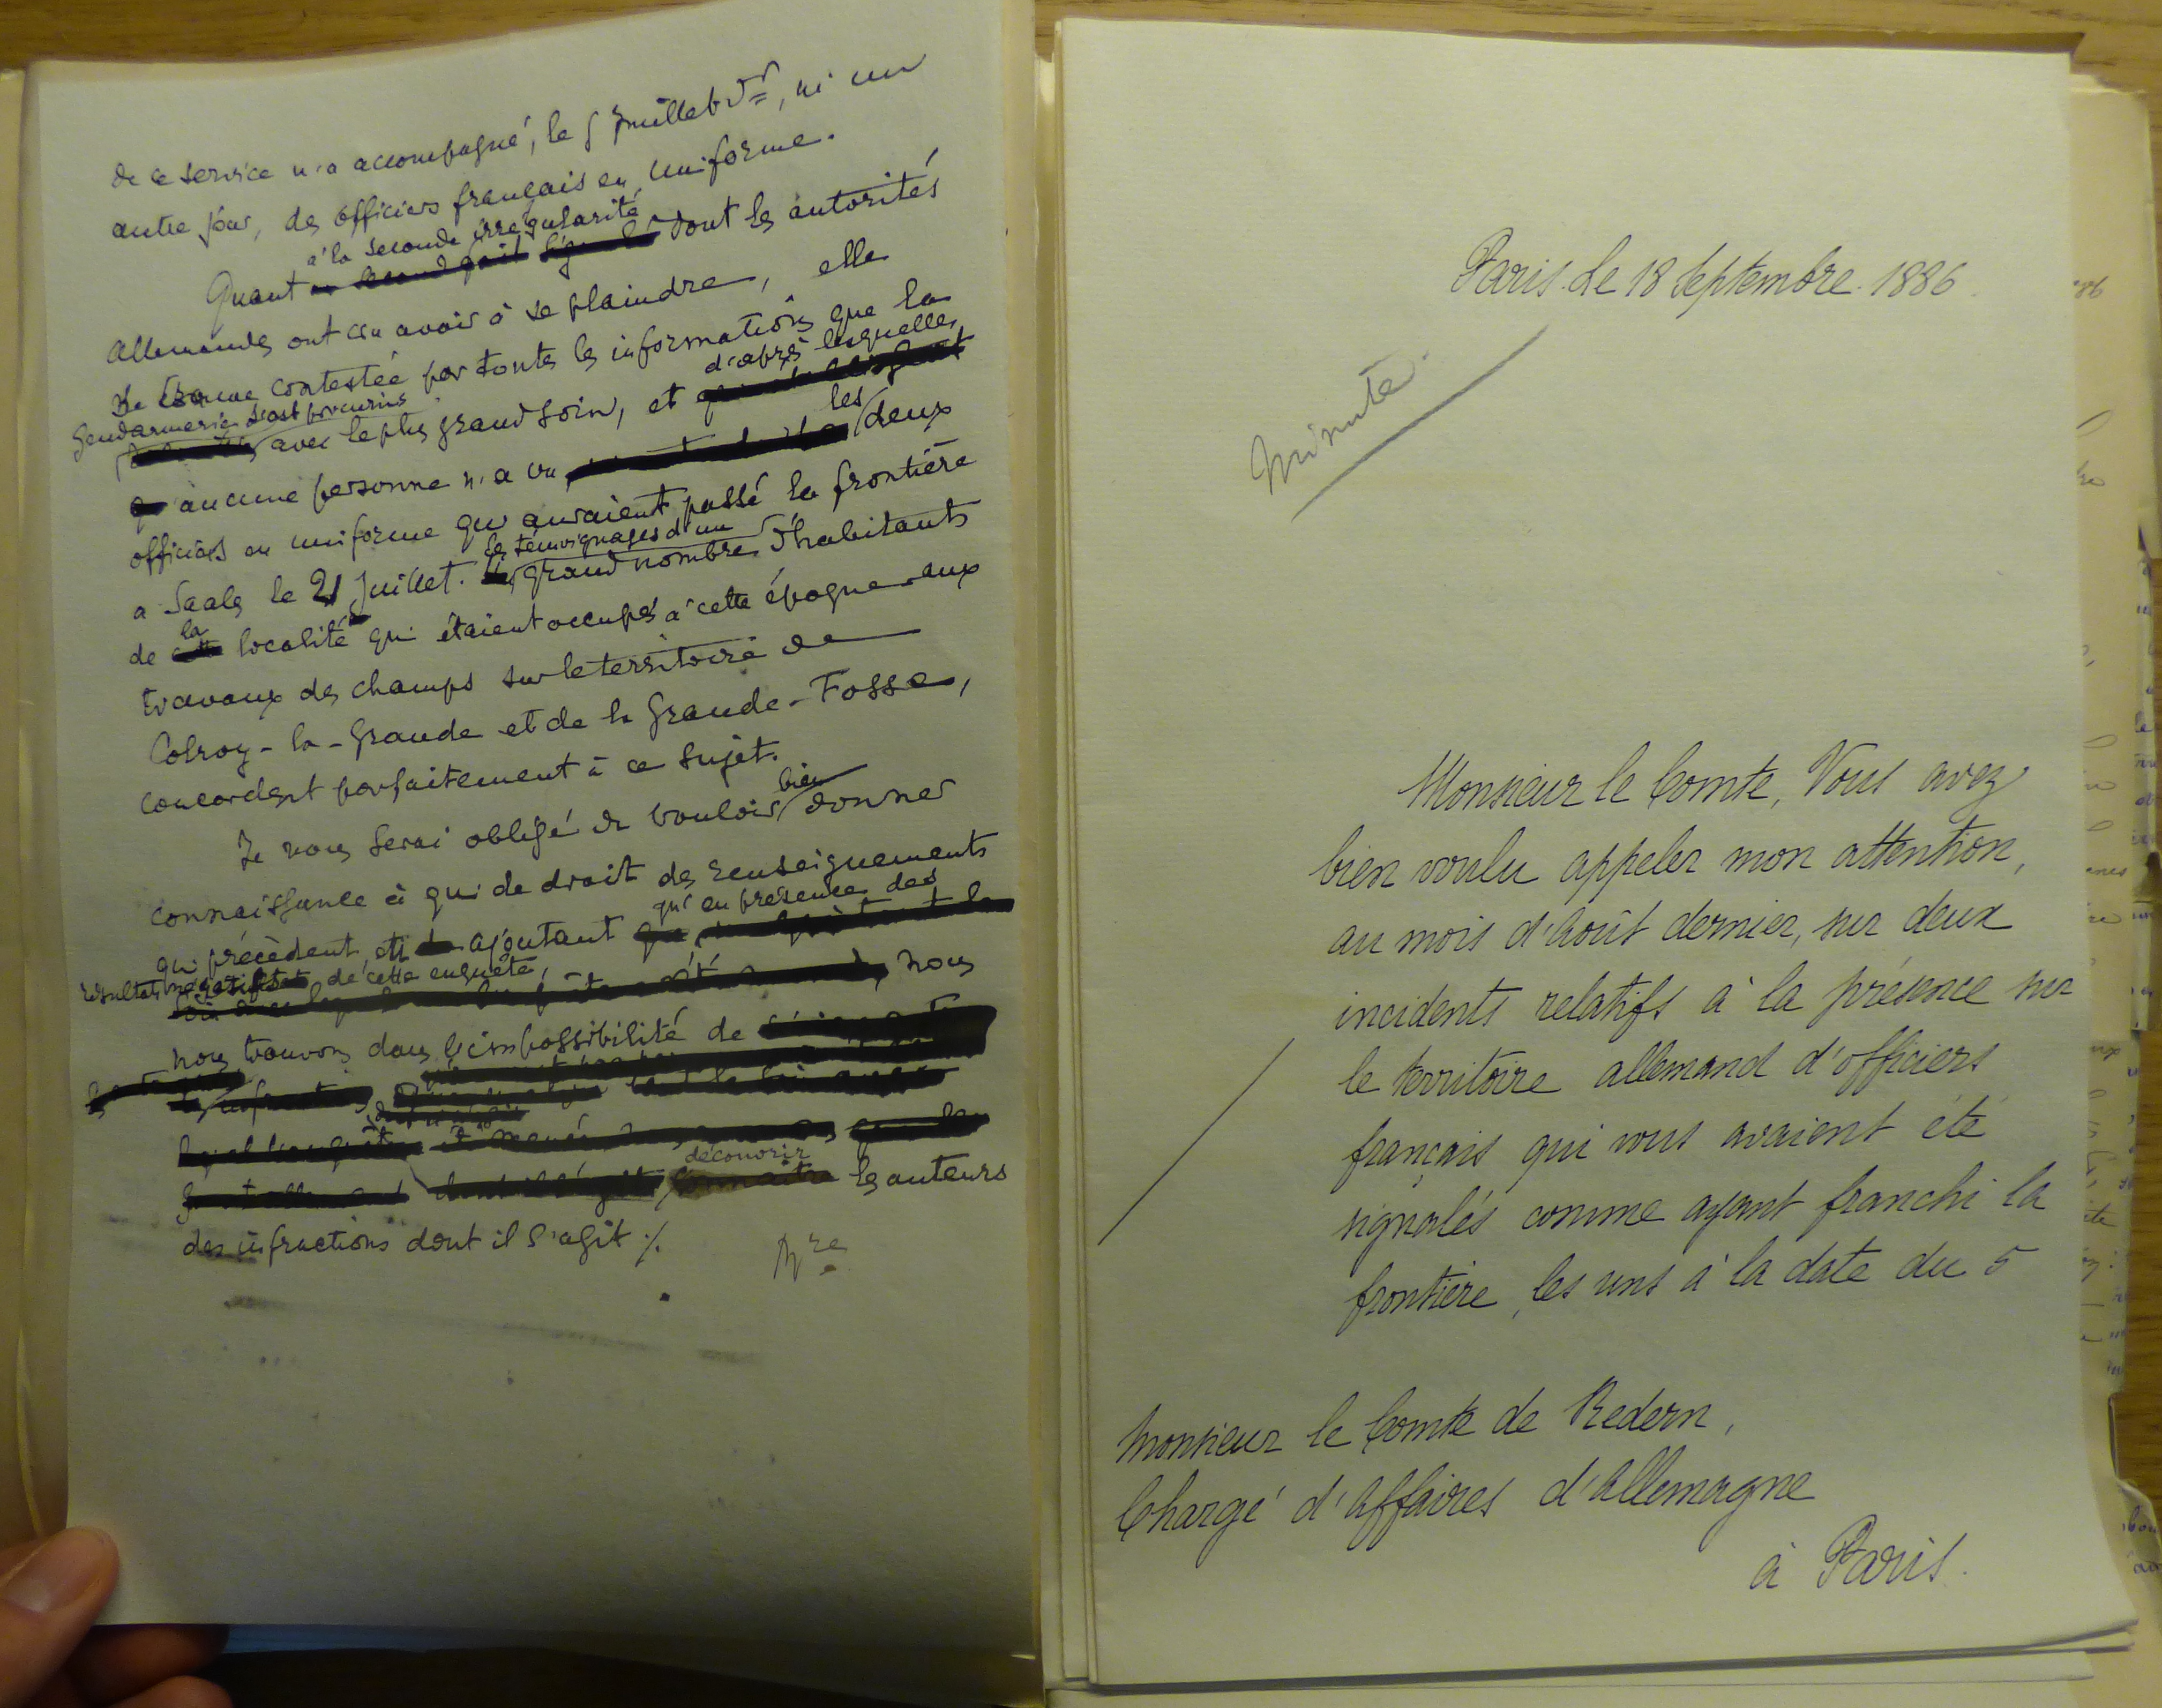 de ce service n'a accompagné, le 5 Juillet dr, ni un
autre jour, des officiers français en uniforme.
à la seconde irrégularité
Quant dont les autorités
Allemandes ont cru avoir à se plaindre, elle
se trouve contestée par toutes les informations que la
gendarmerie s'est procurées
d'après lesquelles
avec le plus grand soin, et
aucune personne n'a vu les deux
officiers en uniforme qui auraient passé la frontière
à Saales le 21 Juillet. les témoignages d'un grand nombre d'habitants
de la localité qui étaient occupés à cette époque aux
travaux des champs sur le territoire de
Colroy-la-Grande et de la Grande-Fosse,
concordent parfaitement à ce sujet.
Je vous serai obligé de vouloir bien donner
connaissance à qui de droit des renseignements
qui précèdent, en ajoutant qu'en présence des
résultats négatifs de cette enquête, nous
nous trouvons dans l'impossibilité de
découvrir les auteurs
des infractions dont il s'agit ./.
Paris. Le 18 Septembre. 1886.
Minute.
Monsieur le Comte, Vous avez
bien voulu appeler mon attention,
au mois d'Août dernier, sur deux
incidents relatifs à la présence sur
le territoire allemand d'officiers
français qui vous avaient été
signalés comme ayant franchi la
frontière, les uns à la date du 5
Monsieur le Comte de Redern,
Chargé d'Affaires d'Allemagne
à Paris.